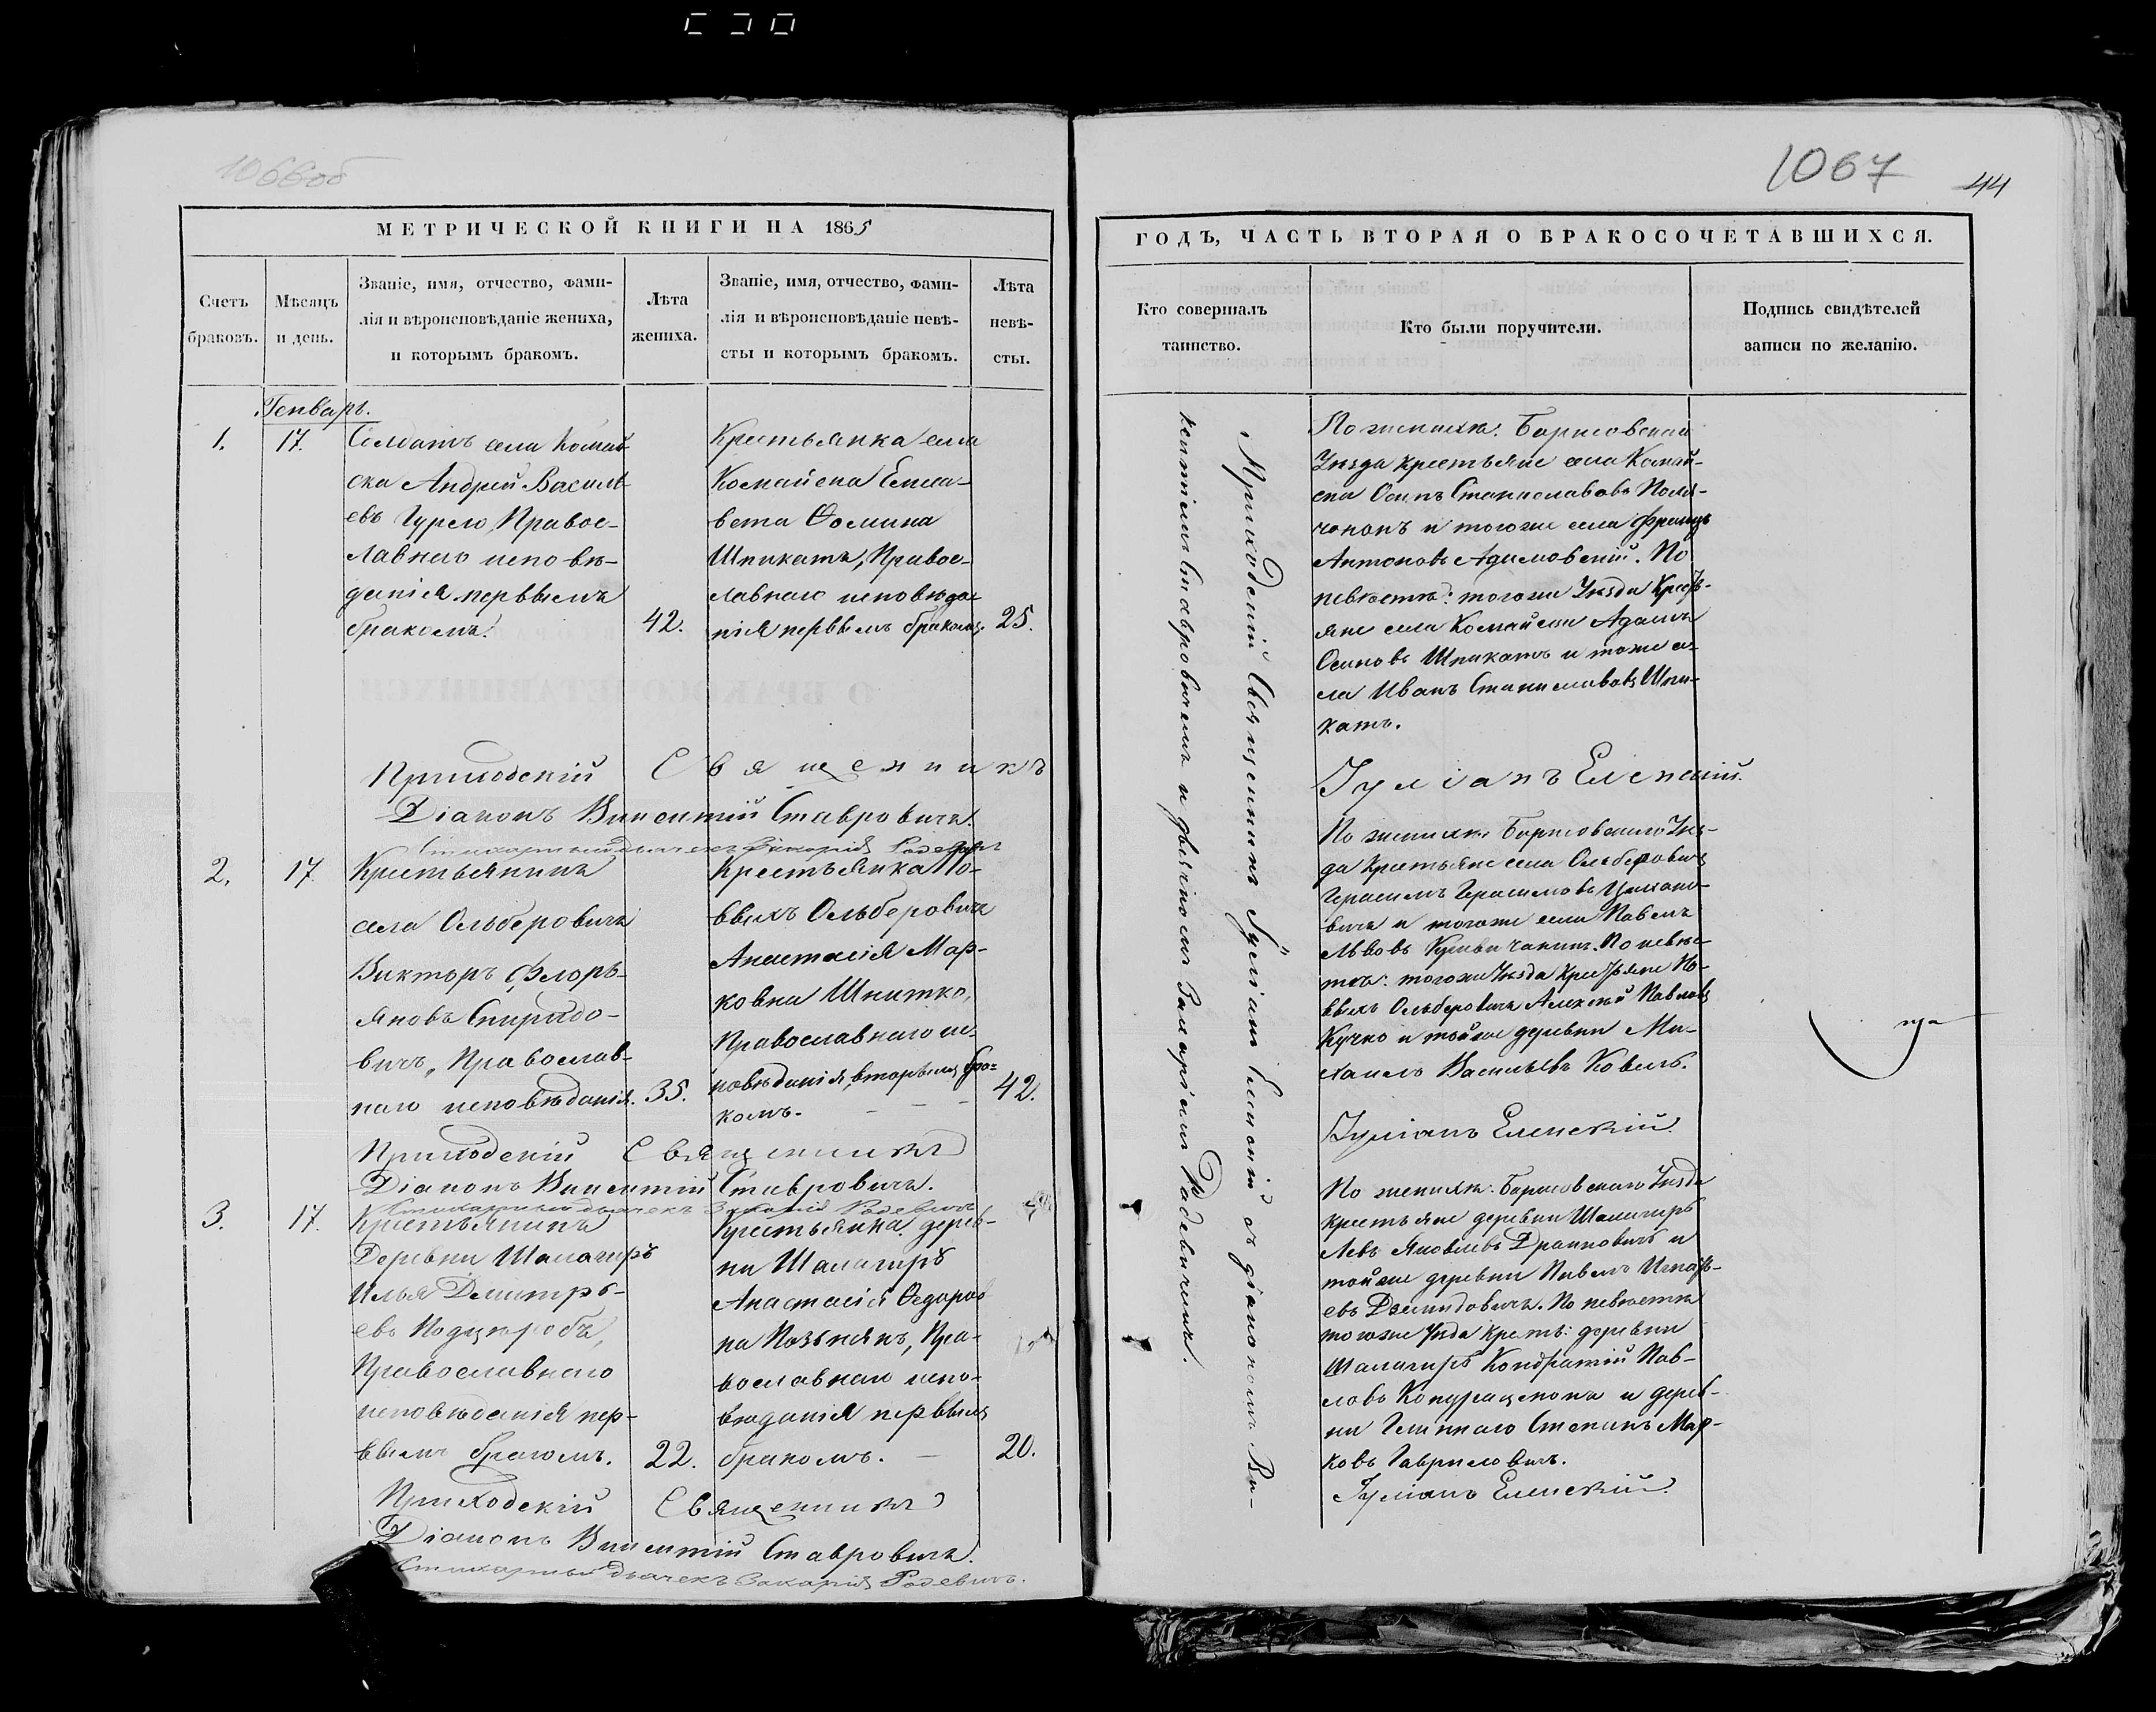 1066об
МЕТРИЧЕСКОЙ КНИГИ НА 1865
Счетъ
браковъ.
Мѣсяцъ
и день.
Званіе, имя, отчество, фами-
лія и вѣроисповѣданіе жениха,
и которымъ бракомъ.
Лѣта
жениха.
Званіе, имя, отчество, фами-
лія и вѣроисповѣданіе невѣ-
сты и которымъ бракомъ.
Лѣта
невѣ-
сты.
Генварь.
1.
17.
Солдатъ села Комай-
ска Андрей Василь-
евъ Гурло, Правос-
лавнаго исповѣ-
данія первымъ
бракомъ.
42.
Крестьянка села
Комайска Елиса-
вета Ѳомина
Шпикатъ, Правос-
лавнаго исповѣда-
нія первымъ бракомъ.
25.
Приходскій Священникъ
Діаконъ Викентій Ставровичъ.
Стихарный дьячекъ Захарія Радевичъ
2.
17.
Крестьянинъ
села Ольберовичъ
Викторъ Флорь-
яновъ Спиридо-
вичъ, Православ-
наго исповѣданія.
35.
Крестьянка Но-
выхъ Ольберовичъ
Анастасія Мар-
ковна Шпитко,
Православнаго ис-
повѣданія, вторымъ бра-
комъ.
42.
Приходскій Священникъ
Діаконъ Викентій Ставровичъ.
Стихарный дьячекъ Захарія Радевичъ
3.
17.
Крестьянинъ
Деревни Шалагиръ
Илья Димитрь-
евъ
Православнаго
исповѣданія пер-
вымъ бракомъ.
22.
Крестьянка дерев-
ни Шалагиръ
Анастасія Ѳедоров
на Позьнякъ, Пра-
вославнаго испо-
вѣданія первымъ
бракомъ.
20.
Приходскій Священникъ
Діаконъ Викентій Ставровичъ.
Стихарный дьячекъ Захарія Радевичъ.
1067
44
ГОДЪ, ЧАСТЬ ВТОРАЯ О БРАКОСОЧЕТАВШИХСЯ.
Кто совершалъ
таинство.
Кто были поручители.
Подпись свидѣтелей
записи по желанію.
Приходскій Священникъ Іуліанъ Еленскій съ діакономъ Ви-
кентіемъ Ставровичемъ и дьячкомъ Захаріемъ Радевичемъ.
По женихѣ: Борисовскаго
Уѣзда крестьяне села Комай-
ска Осипъ Станиславовъ
и тогоже села Францъ
Антоновъ Адамовскій. По
невѣстѣ: тогоже Уѣзда Кресть-
яне села Комайска Адамъ
Осиповъ Шпикатъ и тоже се-
ла Иванъ Станиславовъ Шпи-
катъ.
Іуліанъ Еленскій.
По женихѣ: Борисовскаго Уѣз-
да Крестьяне села Ольберовичъ
Герасимъ Герасимовъ
и тогоже села Павелъ
Львовъ По невѣс-
тѣ: тогоже Уѣзда Крестьяне Но-
выхъ Ольберовичъ Алексѣй Павловъ
Кучко и тойже деревни Ми-
хаилъ Васильевъ Коваль.
Іуліанъ Еленскій.
По женихѣ: Борисовскаго Уѣзда
крестьяне деревни Шалагиръ
Левъ Яковлевъ и
тойже деревни Павелъ Игнать-
евъ Демидовичъ. По невѣстѣ
тогоже Уѣзда Крест: деревни
Шалагиръ Кондратій Пав-
ловъ и дерев-
ни Степанъ Мар-
ковъ Гавриловичъ.
Іуліанъ Еленскій.